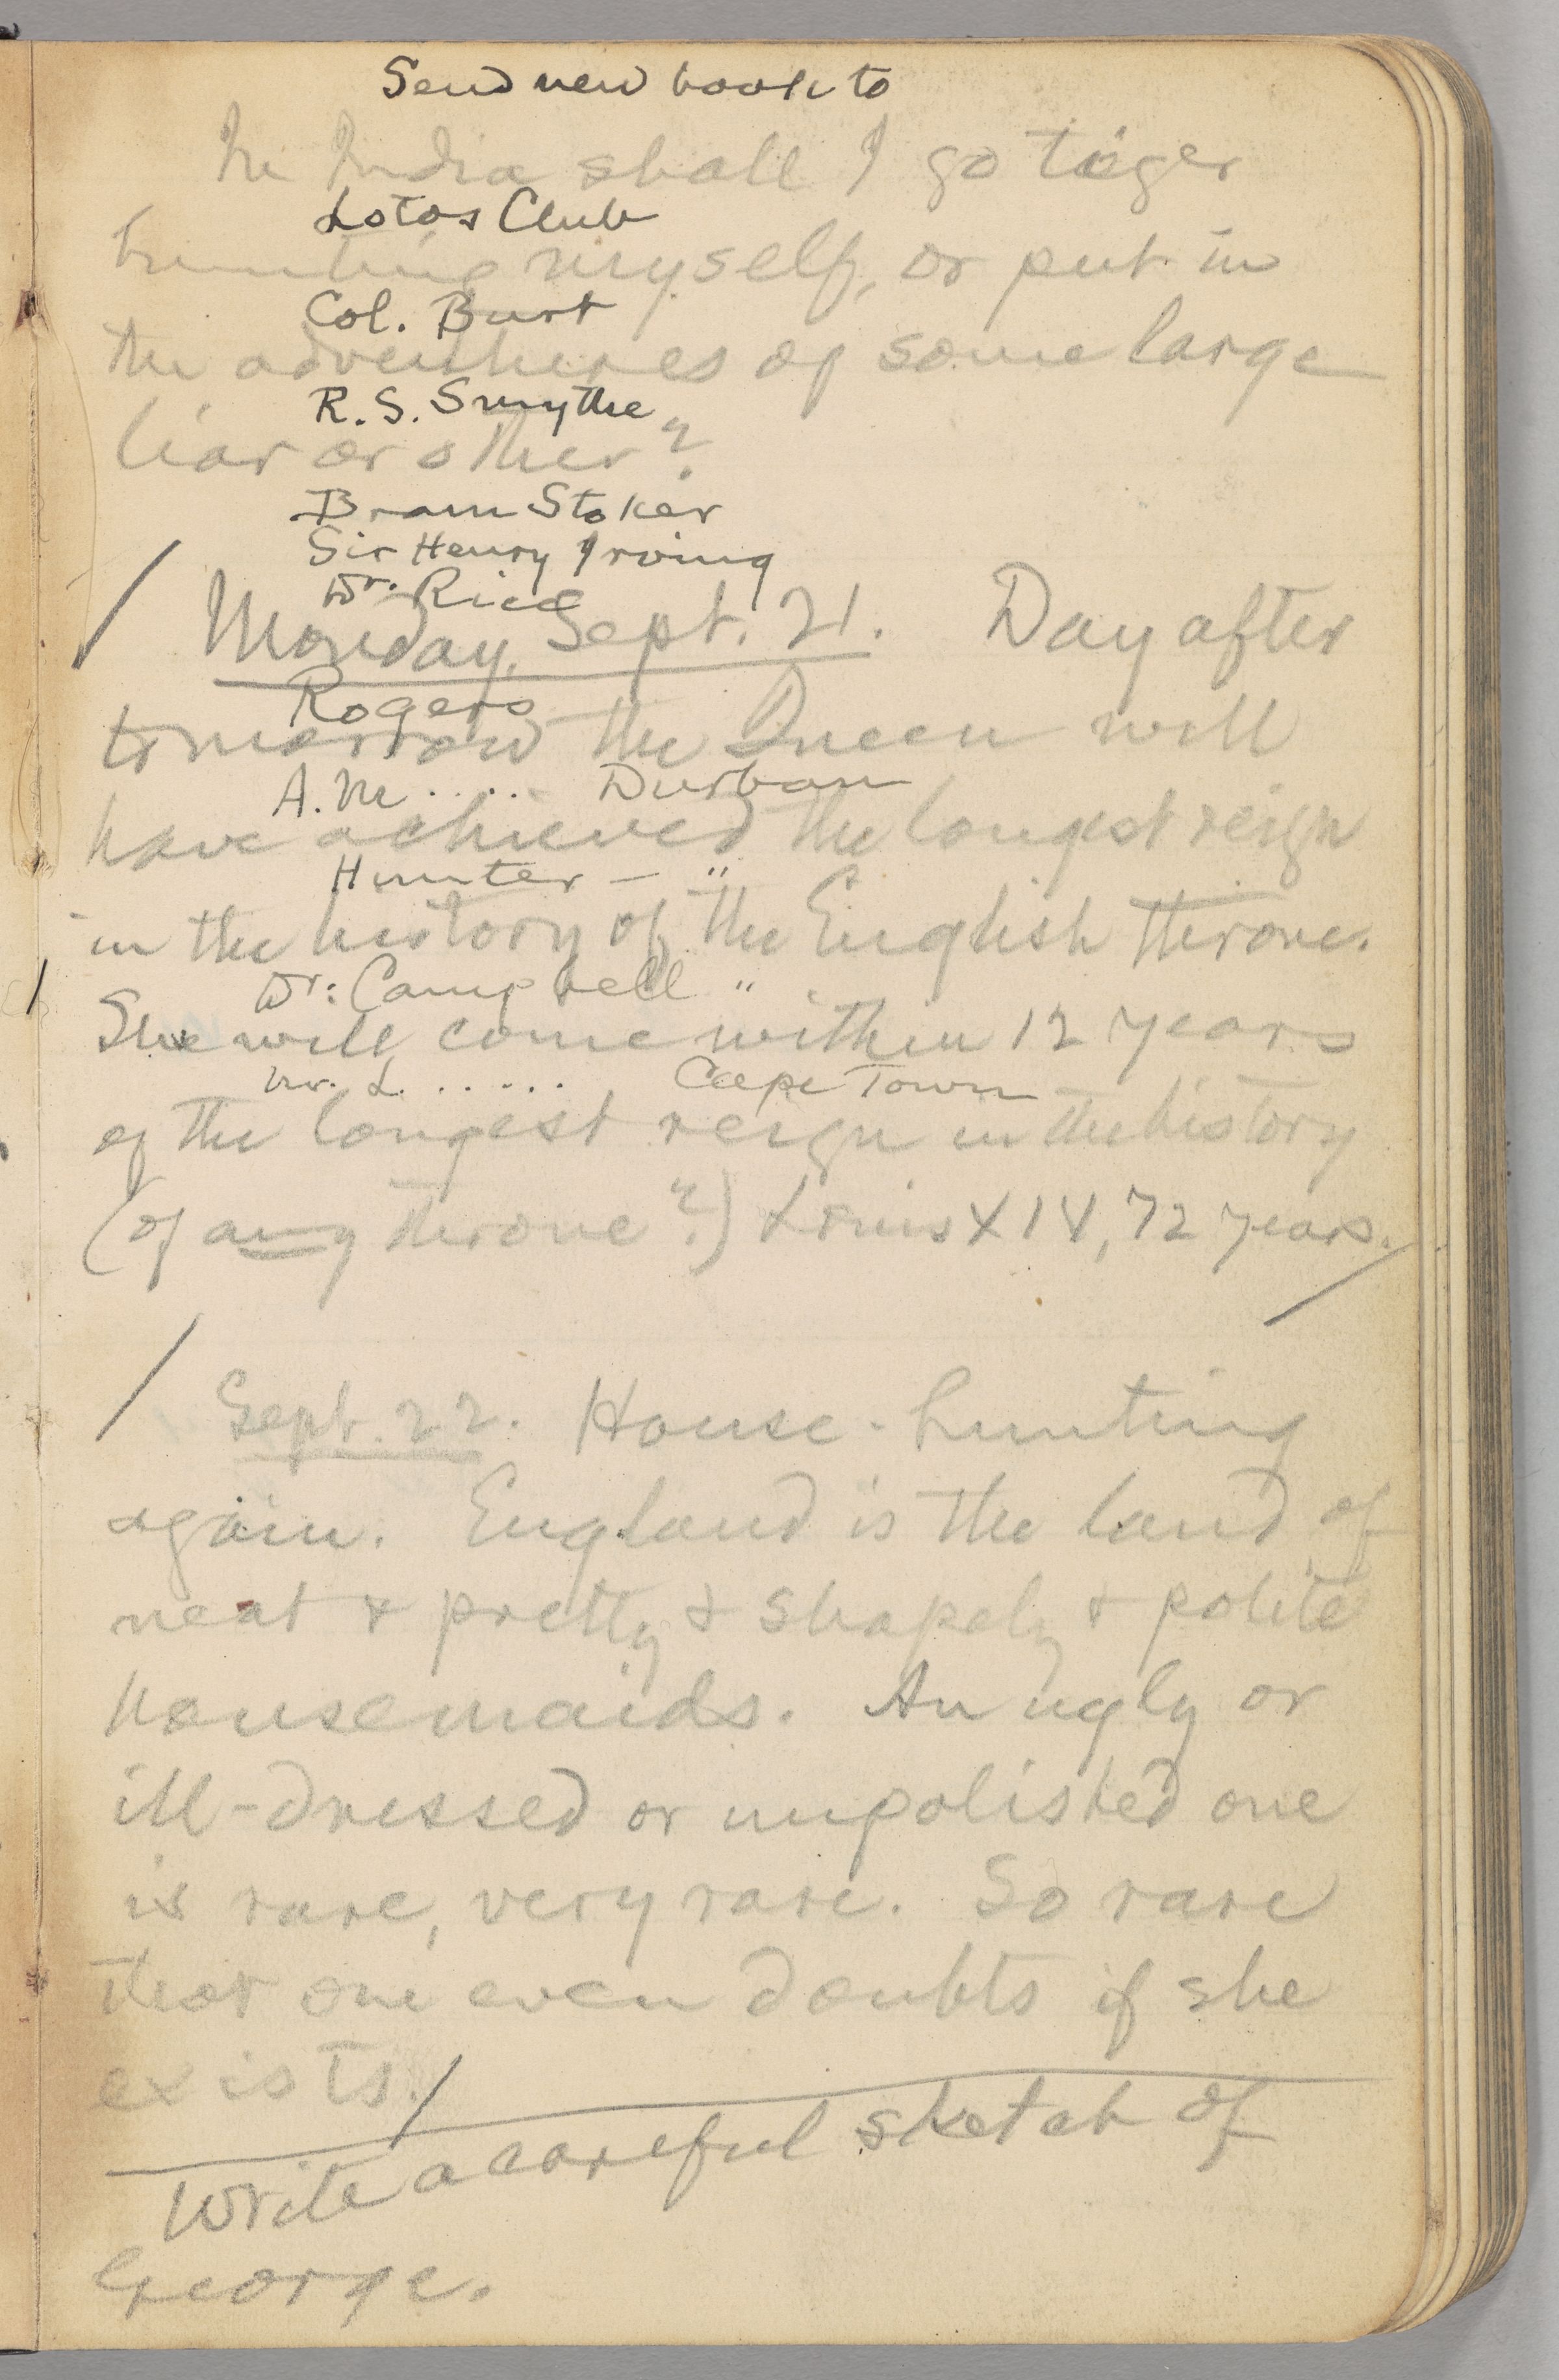 Send new book to
In India shall I go tiger
Lotos Club
hunting myself, or put in
Col. Burt
the adventures of some large
R. S. Smythe
liar or other?
Bram Stoker
Sir Henry Irving
Dr. Rice
Monday, Sept. 21. Day after
Rogers
tomorrow the Queen will
A. M..... Durban
have achieved the longest reign
Hunter — "
in the history of the English throne.
Dr. Campbell "
She will come within 12 years
Mr. L...... Cape Town
of the longest reign in the history
(of any throne?) Louis X1V, 72 years.
Sept. 22. House-hunting
again. England is the land of
neat & pretty & shapely & polite
housemaids. An ugly or
ill-dressed or unpolished one
is rare, very rare. So rare
that one even doubts if she
exists.
Write a careful sketch of
George.